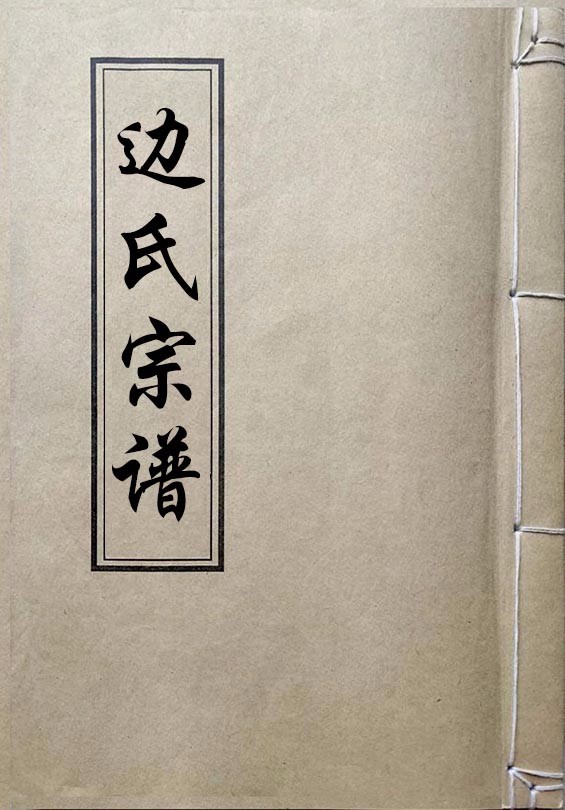 边氏宗谱